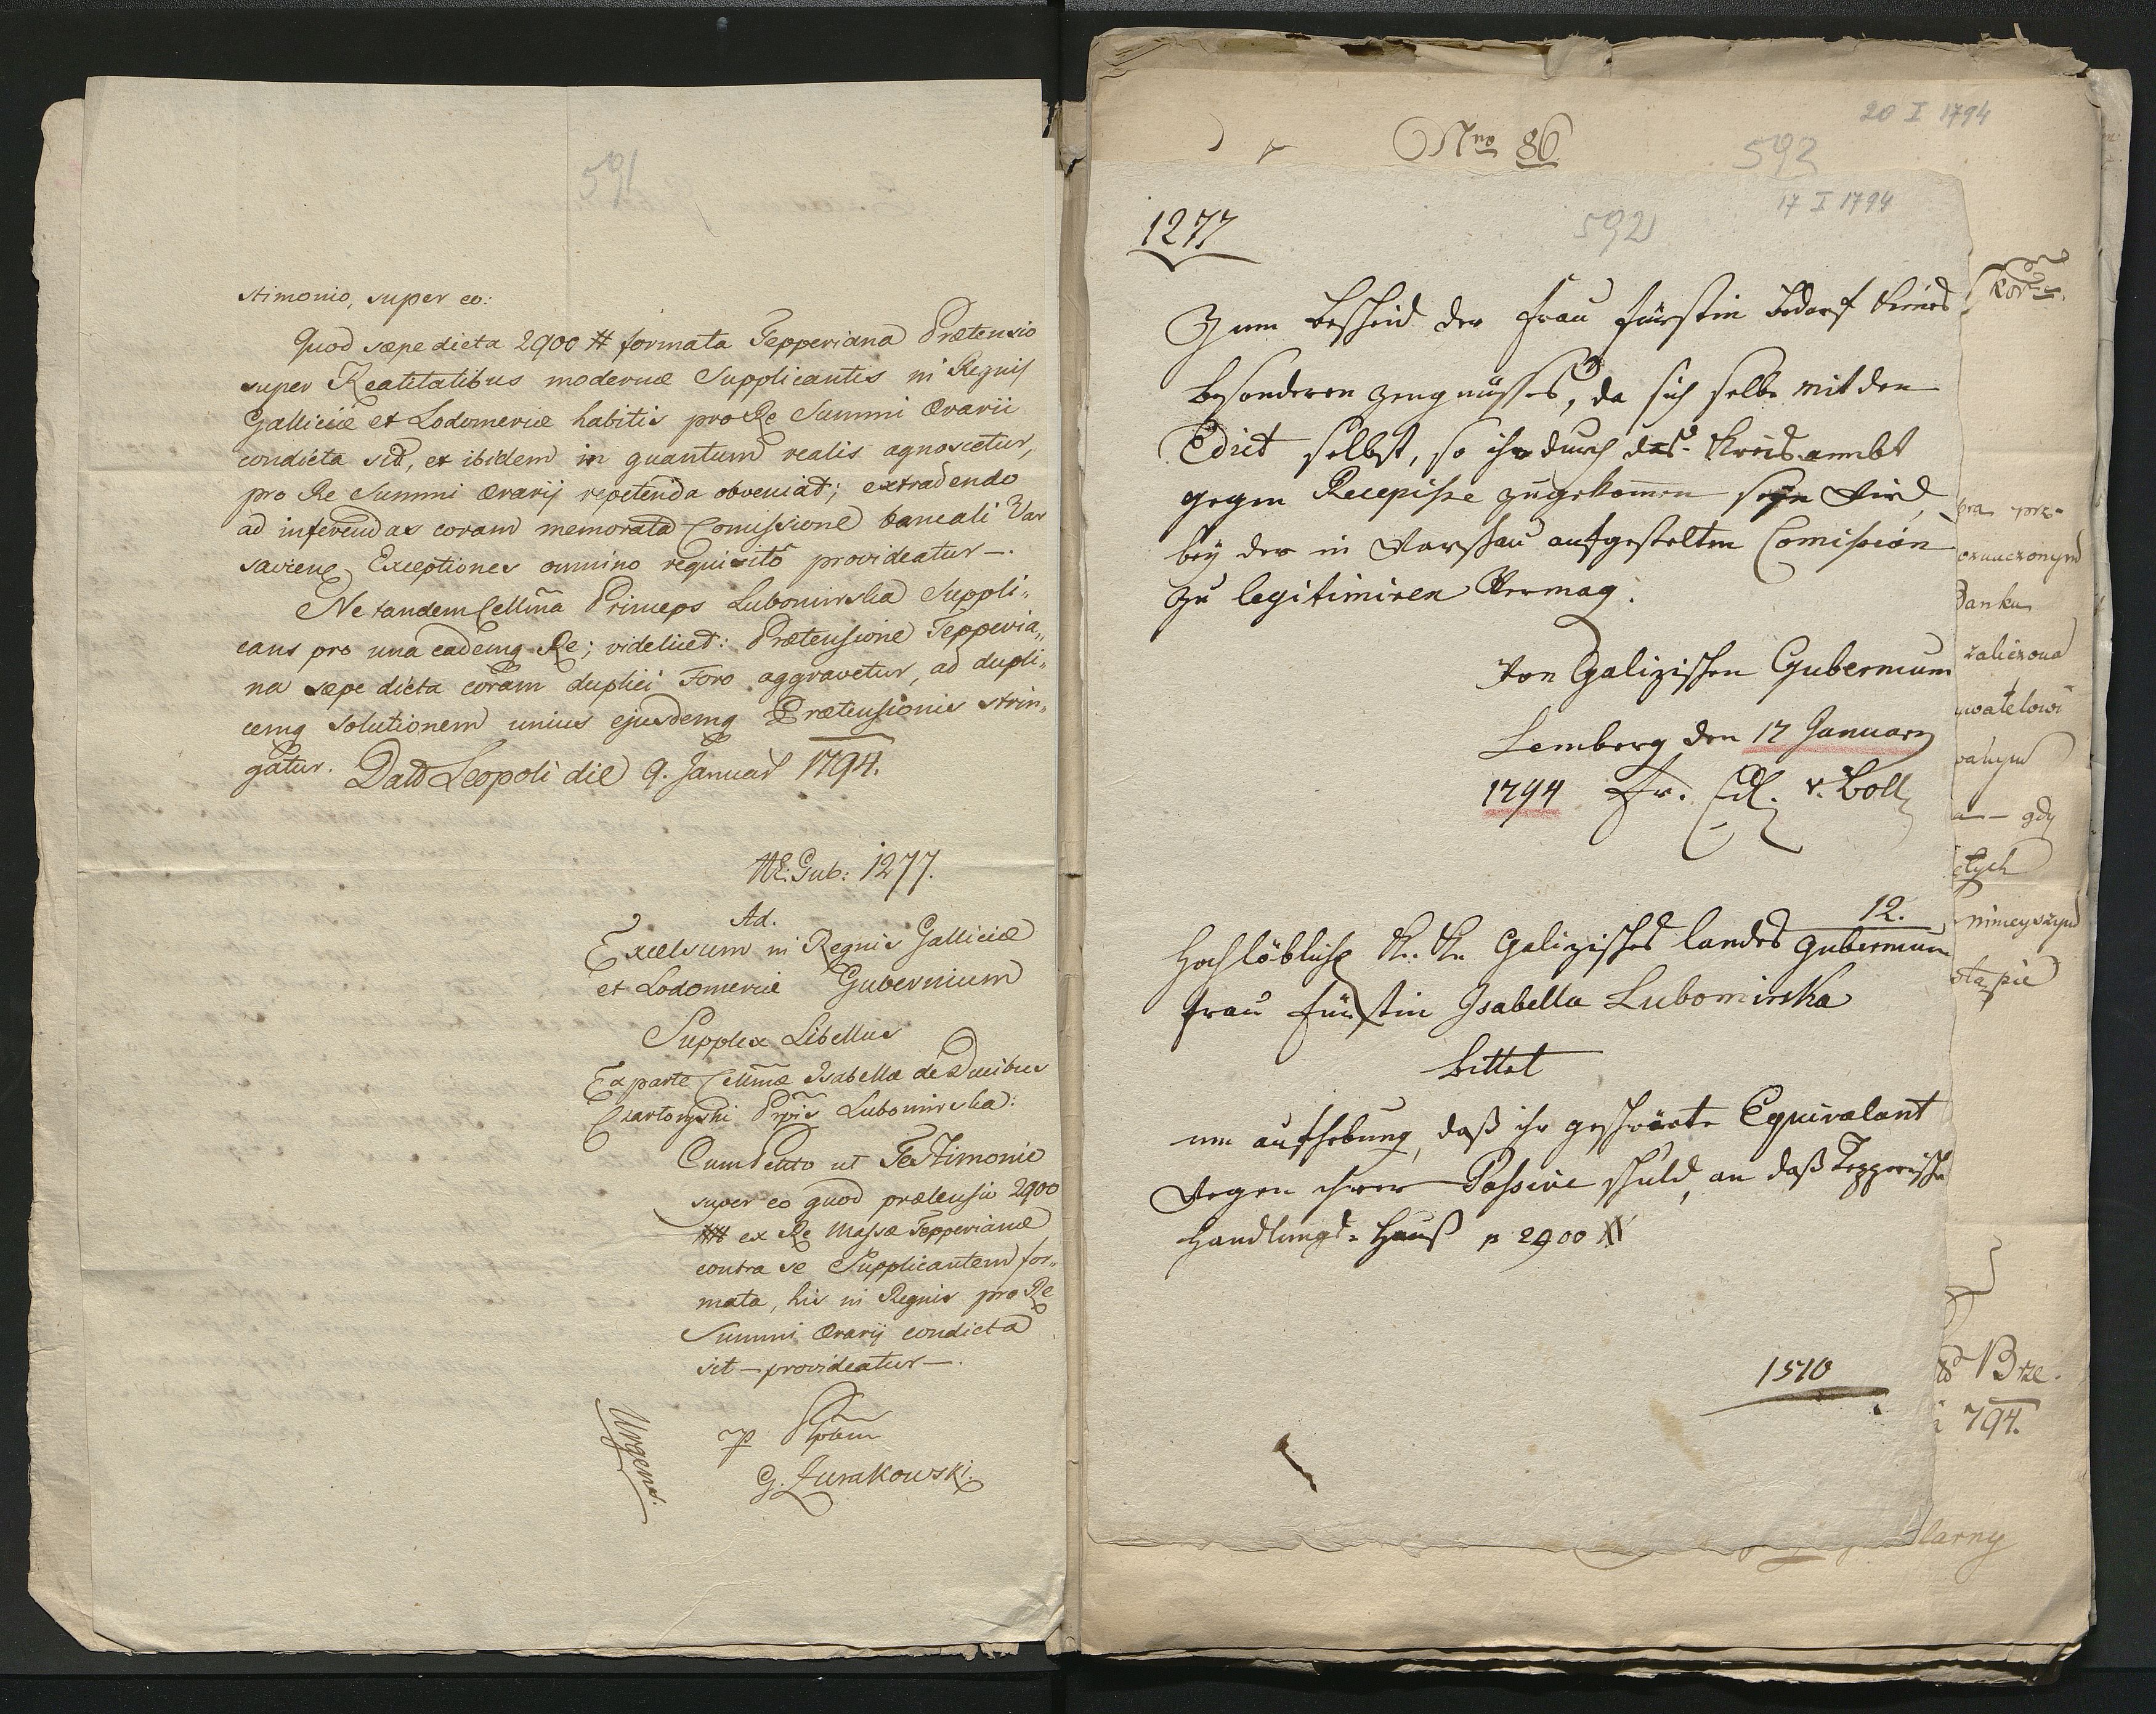 591
stimonio, super eo:
Quod sæpe dicta 2900 # formata Tepperiana Prætensio
super Realitatibus modernæ Supplicantis in Regnis
Galliciæ et Lodomeriæ habitis pro Re Summi Ærarii
condicta sit, et ibidem in quantum realis agnoscetur,
pro Re Summi Ærarij repetenda obveniat; extradendo
ad inferendas coram memorata Comissione bancali Var
saviens Exceptiones omnino requisito provideatur —.
Ne tandem Cellm̃a Princeps Lubomirska Suppli„
cans pro una eademq Re; videlicet: Prætensione Tepperia„
na sæpe dicta coram duplici Foro aggravetur, ad dupli„
cemq solutionem unius ejusdemq Prætensionis strin„
gatur. Dat Leopoli die 9. Januar 1794.
NE: Gub: 1277.
Ad.
Excelsum in Regnis Galliciæ
et Lodomeriæ Gubernium
Supplex Libellus
Ex parte Cellm̃æ Isabellæ de Ducibus
Czartoryski Prpis Lubomirska:
Cum Petito ut Testimonio
super eo quod prætensio 2900
## ex Re Massæ Tepperianæ
contra se Supplicantem for„
mata, his in Regnis pro Re
Summi Ærarij condicta
sit — provideatur —.
Urgens.
G. Zurakowski.
20 I 1794
Nro 86
592
17 I 1794
1277
592
Zum Bescheid der Frau Fürstin bedarf keines
besonderen Zeugnüsses, da sich selbe mit den
Edict selbst, so ihr durch das Kreisambt
gegen Recepisse zugekommen seyn wird,
bey der in Warschau aufgestelten Comission
zu legitimiren Vermag.
Von Galizischen Gubernium
Lemberg den 17 Januar
1794 Fr. Edl. v. Boll
12.
Hochlöbliche K. K. Galizisches Landes Gubernium
Frau Fürstin Isabella Lubomirska
bittet
um aufhebung, daß ihr gesperte Equivalant
wegen ihrer Passive schuld, an daß Tepperische
Handlungs-Hauß p 2900 #
1510
Banku
zaliczona
watelowi
a — gdy
tych
nimeyszym
stąpie
Brze.
794.
larny